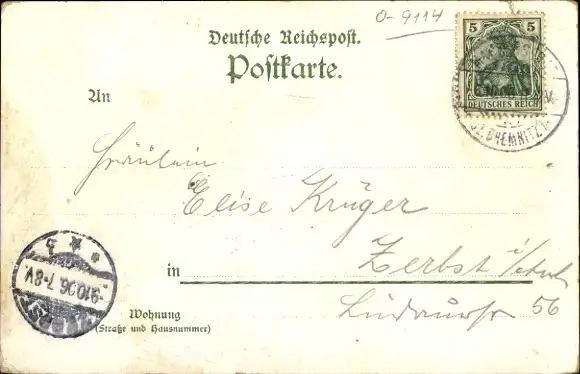 0-9114
Deutsche Reichspost.
Postkarte.
5 5
DEUTSCHES REICH
CHEMNITZ
An
Fräulein
Elise Krüger
in Zerbst i/Anh
56
Wohnung
(Straße und Hausnummer)
9.10.06.7-8V.